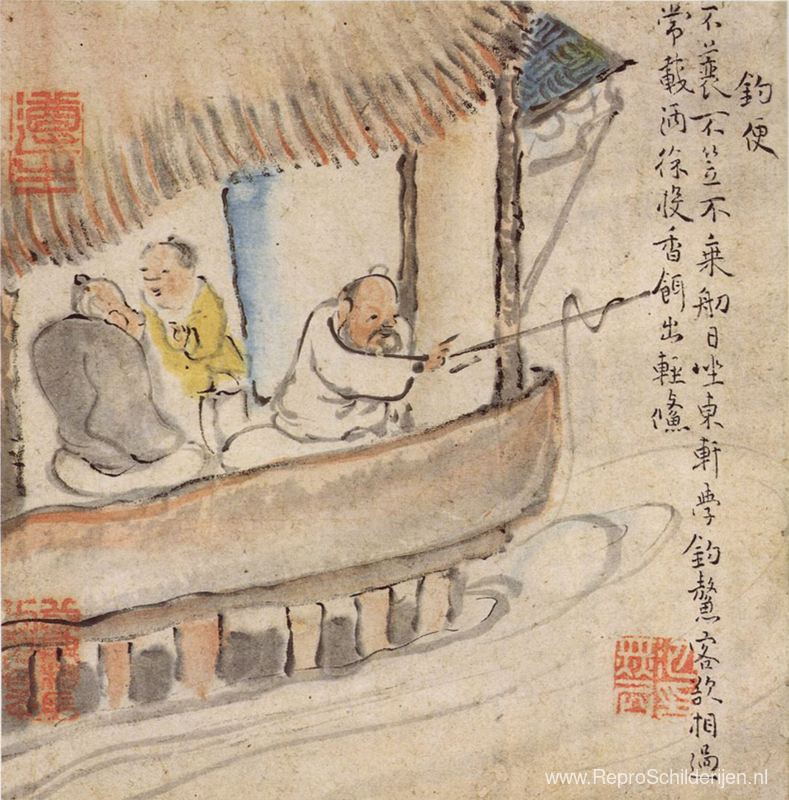 釣便
不蓑不笠不乗舠日坐東軒學釣鰲客欲相過
常載酒徐投香餌出輕鯈
www.ReproSchilderijen.nl